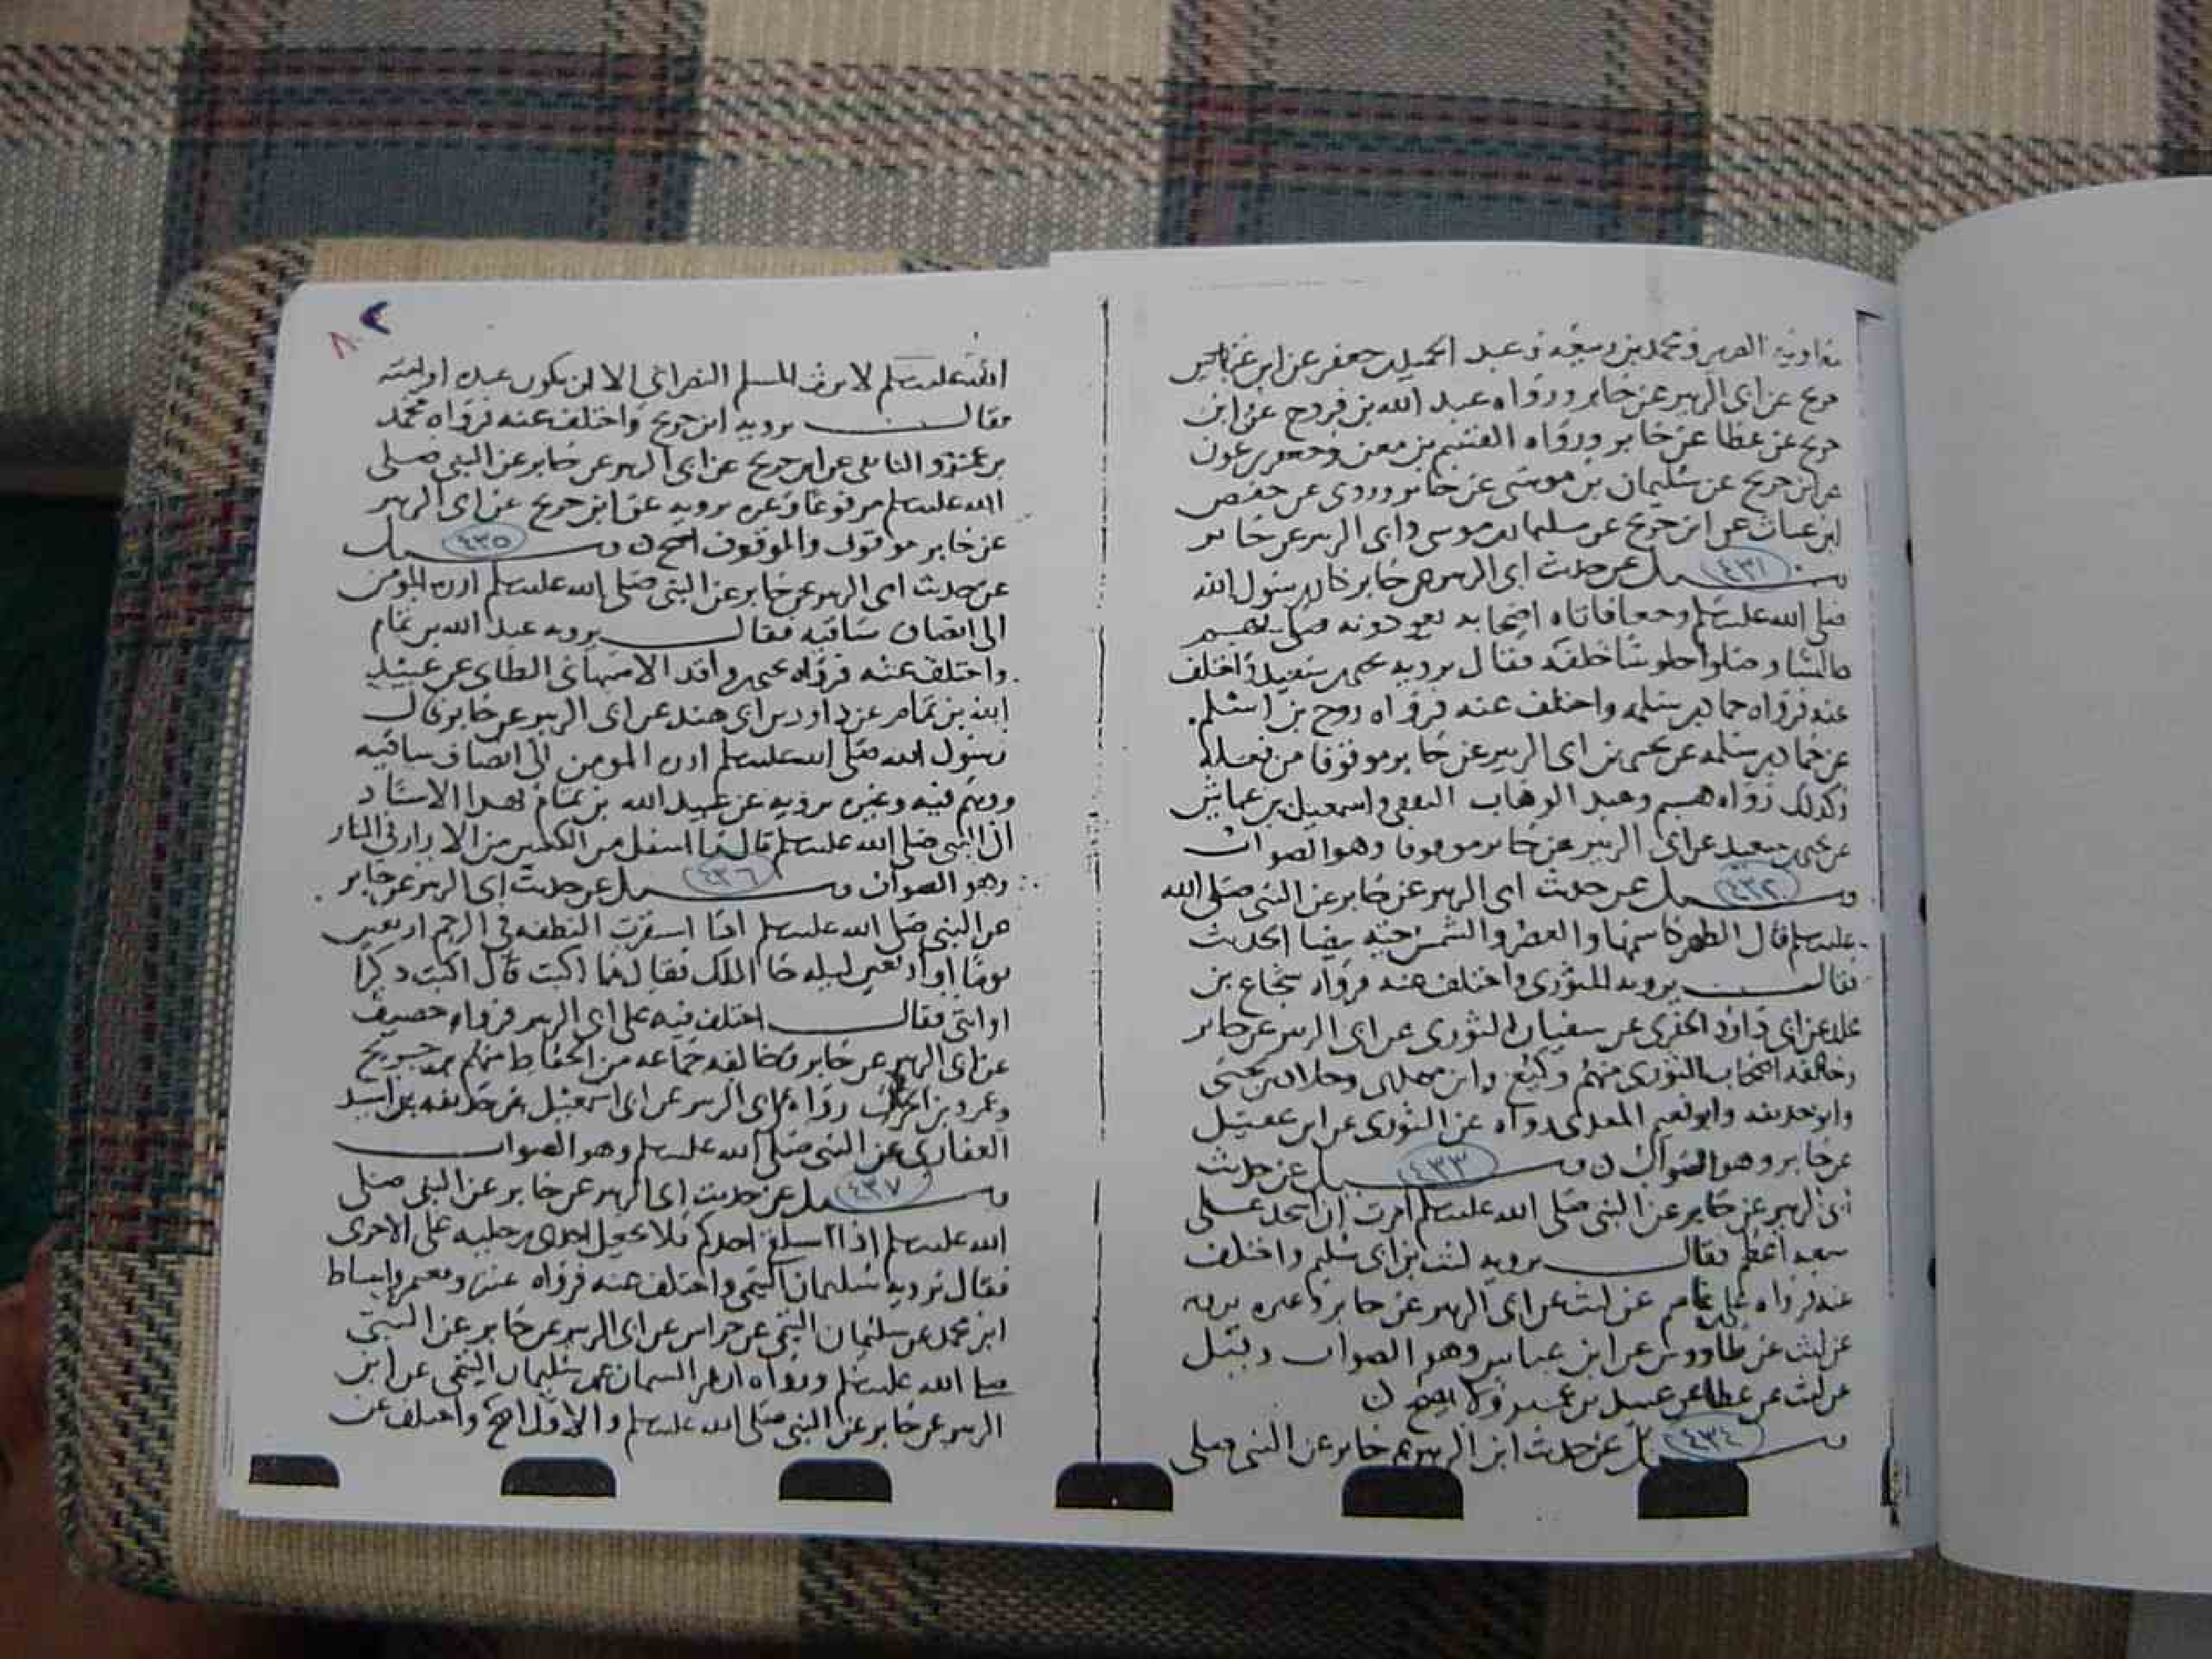 جريج عن ابى الزبير عن جابر ورواه عبد الله بن فروخ عن ابن
جريج عن عطا عن جابر ورواه القسم بن معن وجعفر بن عون
عن ابن جريج عن سليمان بن موسى عن جابر وروى عن حفص
ابن غياث عن ابن جريج عن سليمان بن موسى وابى الزبير عن جابر
٤٣١ وسئل عن حديث ابى الزبير عن جابر قال رسول الله
صلى الله عليه وسلم وجعا فاتاه اصحابه يعودونه فصلى بهم
جالسا وصلوا جلوسا خلفه فقال يرويه يحيى بن سعيد واختلف
عنه فرواه حماد بن سلمه واختلف عنه فرواه روح بن اسلم
عن حماد بن سلمه عن يحيى بن ابى الزبير عن جابر موقوفا من فعله
وكذلك رواه هشيم وعبد الوهاب الثقفى واسمعيل بن عياش
عن يحيى بن سعيد عن ابى الزبير عن جابر موقوفا وهو الصواب
٤٣٢ وسئل عن حديث ابى الزبير عن جابر عن النبى صلى الله
عليه وسلم قال الظهر كاسمها والعصر والشمس حية بيضا الحديث
فقال يرويه الثورى واختلف عنه فرواه شجاع بن
مخلد عن ابى داود الحفرى عن سفيان الثورى عن ابى الزبير عن جابر
وخالفه اصحاب الثورى منهم وكيع وابن مهدى وخلاد بن يحيى
وابو حذيفه وابو نعيم رواه عن الثورى عن ابن عقيل
عن جابر وهو الصواب ن ٤٣٣ وسئل عن حديث
ابى الزبير عن جابر عن النبى صلى الله عليه وسلم امرت ان اسجد على
سبعه اعظم فقال يرويه ليث بن ابى سليم واختلف
عنه فرواه عن ليث عن ابى الزبير عن جابر وغيره يرويه
عن ليث عن طاووس عن ابن عباس وهو الصواب وقيل
عن ليث عن عطا عن عبيد بن عمير ولا يصح ن
٤٣٤ وسئل عن حديث ابى الزبير عن جابر عن النبى صلى
الله عليه وسلم لا يرث المسلم النصرانى الا ان يكون عبده او امته
فقال يرويه ابن جريج واختلف عنه فرواه محمد
بن عمرو اليافعى عن ابن جريج عن ابى الزبير عن جابر عن النبى صلى
الله عليه وسلم مرفوعا وغيره يرويه عن ابن جريج عن ابى الزبير
عن جابر موقوف والموقوف اصح ن ٤٣٥ وسئل
عن حديث ابى الزبير عن جابر عن النبى صلى الله عليه وسلم ازره المومن
الى انصاف ساقيه فقال يرويه عبد الله بن تمام
واختلف عنه فرواه يحيى بن واقد الاصبهانى الطائى عن عبيد
الله بن تمام عن داود بن ابى هند عن ابى الزبير عن جابر قال
رسول الله صلى الله عليه وسلم ازره المومن الى انصاف ساقيه
ووهم فيه وغيره يرويه عن عبيد الله بن تمام بهذا الاسناد
ان النبى صلى الله عليه وسلم قال ما اسفل من الكعبين من الازار فى النار
وهو الصواب ٤٣٦ وسئل عن حديث ابى الزبير عن جابر
عن النبى صلى الله عليه وسلم اذا استقرت النطفه فى الرحم اربعين
يوما او اربعين ليله جا الملك فقال ما اكتب قال اكتب ذكرا
او انثى فقال اختلف فيه على ابى الزبير فرواه خصيف
عن ابى الزبير عن جابر وخالفه جماعه من الحفاظ منهم بن جريج
وعمرو بن الحارث رواه عن ابى الزبير عن ابى الطفيل عن حذيفه بن اسيد
الغفارى عن النبى صلى الله عليه وسلم وهو الصواب
٤٣٧ وسئل عن حديث ابى الزبير عن جابر عن النبى صلى
الله عليه وسلم اذا استلقى احدكم فلا يجعل احدى رجليه على الاخرى
فقال يرويه سليمان التيمى واختلف عنه فرواه واسباط
ابن محمد عن سليمان التيمى عن خداش عن ابى الزبير عن جابر عن النبى
صلى الله عليه وسلم ورواه ازهر السمان عن سليمان التيمى عن ابى
الزبير عن جابر عن النبى صلى الله عليه وسلم والاول اصح واختلف عن